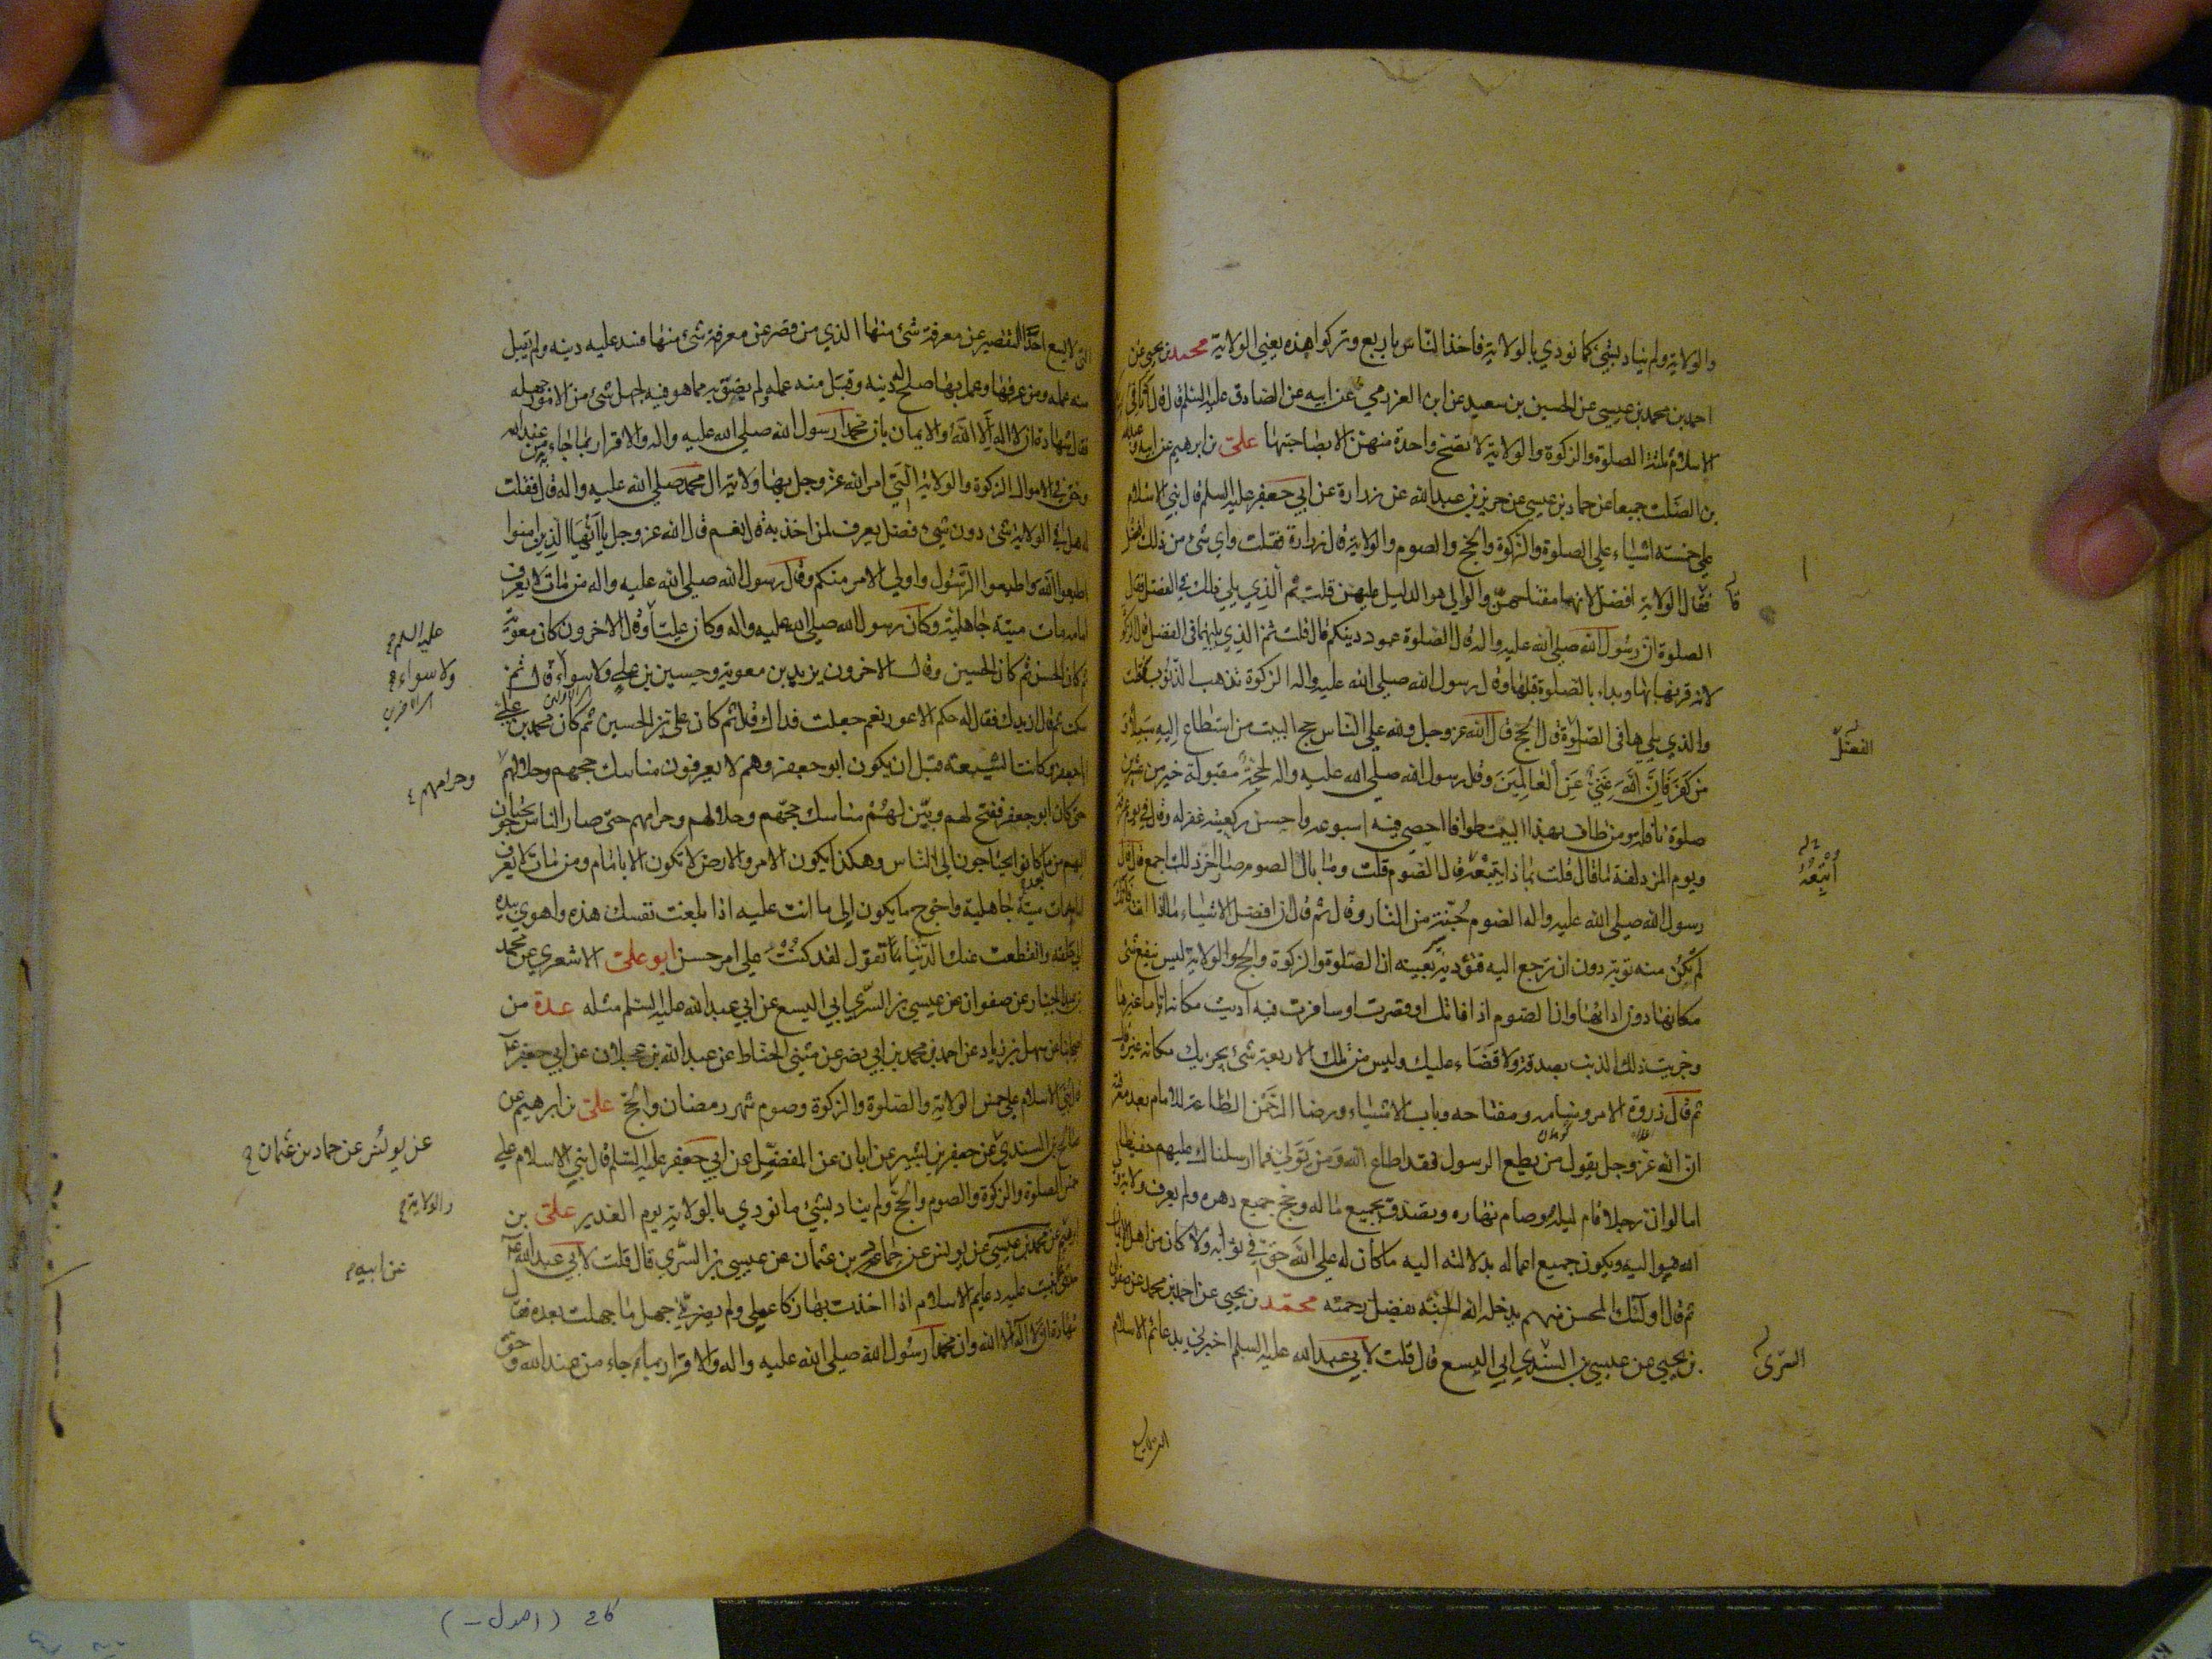 والولاية ولم يناد بشئ كما نودي بالولاية فاخذ الناس باربع وتركوا هذه يعني الولاية محمد بن يحيى عن
احمد بن محمد بن عيسى عن الحسين بن سعيد عن ابن العزرمي عن ابيه عن الصادق عليه السلم قال قال اثافي
الاسلام ثلثة الصلوة والزكوة والولاية لا تصح واحدة منهن الا بصاحبتها علي بن ابرهيم عن ابيه وعبدالله
بن الصلت جميعا عن حماد بن عيسى عن حريز بن عبدالله عن زرارة عن ابي جعفر عليه السلم قال بني الاسلام
علي خمسة اشياء علي الصلوة والزكوة والحج والصوم والولاية قال زرارة فقلت واي شئ من ذلك افضل
فقال الولاية افضل لانها مفتاحهن والوالي هو الدليل عليهن قلت ثم الذي يلي ذلك في الفضل فقال
الصلوة ان رسول الله صلي الله عليه واله قال الصلوة عمود دينكم قال قلت ثم الذي يليها في الفضل قال الزكوة
لانه قرنها بها وبداء بالصلوة قبلها وقال رسول الله صلي الله عليه واله الزكوة تذهب الذنوب قلت
والذي يليها في الصلوة قال الحج قال الله عز وجل ولله علي الناس حج البيت من استطاع اليه سبيلا و
من كفر فان الله غني عن العالمين وقال رسول الله صلي الله عليه واله لحجة مقبولة خير من عشرين
صلوة نافلة ومن طاف بهذا البيت طوافا احصي فيه اسبوعه واحسن ركعتيه غفر له وقال في يوم عرفة
ويوم المزدلفة ما قال قلت بماذا يتبعه قال الصوم قلت وما بال الصوم صار اخر ذلك اجمع قال قال
رسول الله صلي الله عليه واله الصوم جنة من النار وقال ثم قال ان افضل الاشياء ما اذا انت فاتك
لم تكن منه توبة دون ان ترجع اليه فتؤديه بعينه ان الصلوة والزكوة والحج والولاية ليس ينفع شئ
مكانها دون ادائها وان الصوم اذا فاتك او قصرت او سافرت فيه اديت مكانه اياما غيرها
وجزيت ذلك الذنب بصدقة ولا قضاء عليك وليس من تلك الاربعة شئ يجزيك مكانه غيره قال
ثم قال ذروة الامر وسنامه ومفتاحه وباب الاشياء ورضا الرحمن الطاعة للامام بعد معرفته
ان الله عز وجل يقول من يطع الرسول فقد اطاع الله ومن تولي فما ارسلناك عليهم حفيظا
اما لو ان رجلا قام ليله وصام نهاره وتصدق بجميع ماله وحج جميع دهره ولم يعرف ولاية ولي
الله فيواليه ويكون جميع اعماله بدلالته اليه ما كان له علي الله حق في ثوابه ولا كان من اهل الايمان
ثم قال اولئك المحسن منهم يدخله الله الجنة بفضل رحمته محمد بن يحيى عن احمد بن محمد عن صفوان
بن يحيى عن عيسى بن السندي ابي اليسع قال قلت لابي عبدالله عليه السلم اخبرني بدعائم الاسلام
الفضل
أتبعه
السري
التي لا يسع احدا التقصير عن معرفة شئ منها الذي من قصر عن معرفة شئ منها فسد عليه دينه ولم يقبل
منه عمله ومن عرفها وعمل بها صلح له دينه وقبل منه عمله ولم يضق به مما هو فيه لجهل شئ من الامور جهله
فقال شهادة ان لا اله الا الله والايمان بان محمدا رسول الله صلي الله عليه واله والاقرار بما جاء به من عند الله
وحق في الاموال الزكوة والولاية التي امر الله عز وجل بها ولاية ال محمد صلي الله عليه واله قال فقلت
له هل في الولاية شئ دون شئ فضل يعرف لمن اخذ به قال نعم قال الله عز وجل يا ايها الذين امنوا
اطيعوا الله واطيعوا الرسول واولي الامر منكم وقال رسول الله صلي الله عليه واله من مات لا يعرف
امامه مات ميتة جاهلية وكان رسول الله صلي الله عليه واله وكان عليا وقال الاخرون كان معوية
ثم كان الحسن ثم كان الحسين وقال الاخرون يزيد بن معوية وحسين بن علي ولا سواء قال ثم
سكت ثم قال ازيدك فقال له حكم الاعور نعم جعلت فداك قال ثم كان علي بن الحسين ثم كان محمد بن علي
ابا جعفر وكانت الشيعة قبل ان يكون ابو جعفر وهم لا يعرفون مناسك حجهم وحلالهم
حتى كان ابو جعفر ففتح لهم وبين لهم مناسك حجهم وحلالهم وحرامهم حتى صار الناس يحتاجون
اليهم من بعد ما كانوا يحتاجون الى الناس وهكذا يكون الامر والارض لا تكون الا بامام ومن مات لا يعرف
امامه مات ميتة جاهلية واحوج ما يكون الى ما انت عليه اذا بلغت نفسك هذه واهوي بيده
الى حلقه وانقطعت عنك الدنيا تقول لقد كنت علي امر حسن ابو علي الاشعري عن محمد
بن عبدالجبار عن صفوان عن عيسى بن السري ابي اليسع عن ابي عبدالله عليه السلم مثله عدة من
اصحابنا عن سهل بن زياد عن احمد بن محمد بن ابي نصر عن مثني الحناط عن عبدالله بن عجلان عن ابي جعفر ع
قال بني الاسلام علي خمس الولاية والصلوة والزكوة وصوم شهر رمضان والحج علي بن ابرهيم عن
صالح بن السندي عن جعفر بن بشير عن ابان عن المفضل عن ابي جعفر عليه السلم قال بني الاسلام علي
خمس الصلوة والزكوة والصوم والحج ولم يناد بشئ ما نودي بالولاية يوم الغدير علي بن
ابرهيم عن محمد بن عيسى عن يونس عن حماد بن عثمان عن عيسى بن السري قال قلت لابي عبدالله ع
بنيت عليه دعايم الاسلام اذا اخذت بها زكا عملي ولم يضرني جهل ما جهلت بعده فقال
شهادة ان لا اله الا الله وان محمدا رسول الله صلي الله عليه واله والاقرار بما جاء من عند الله وحق
عليه السلم
ولا سواء
وحرامهم
عن يونس عن حماد بن عثمان
والولاية
عن ابيه